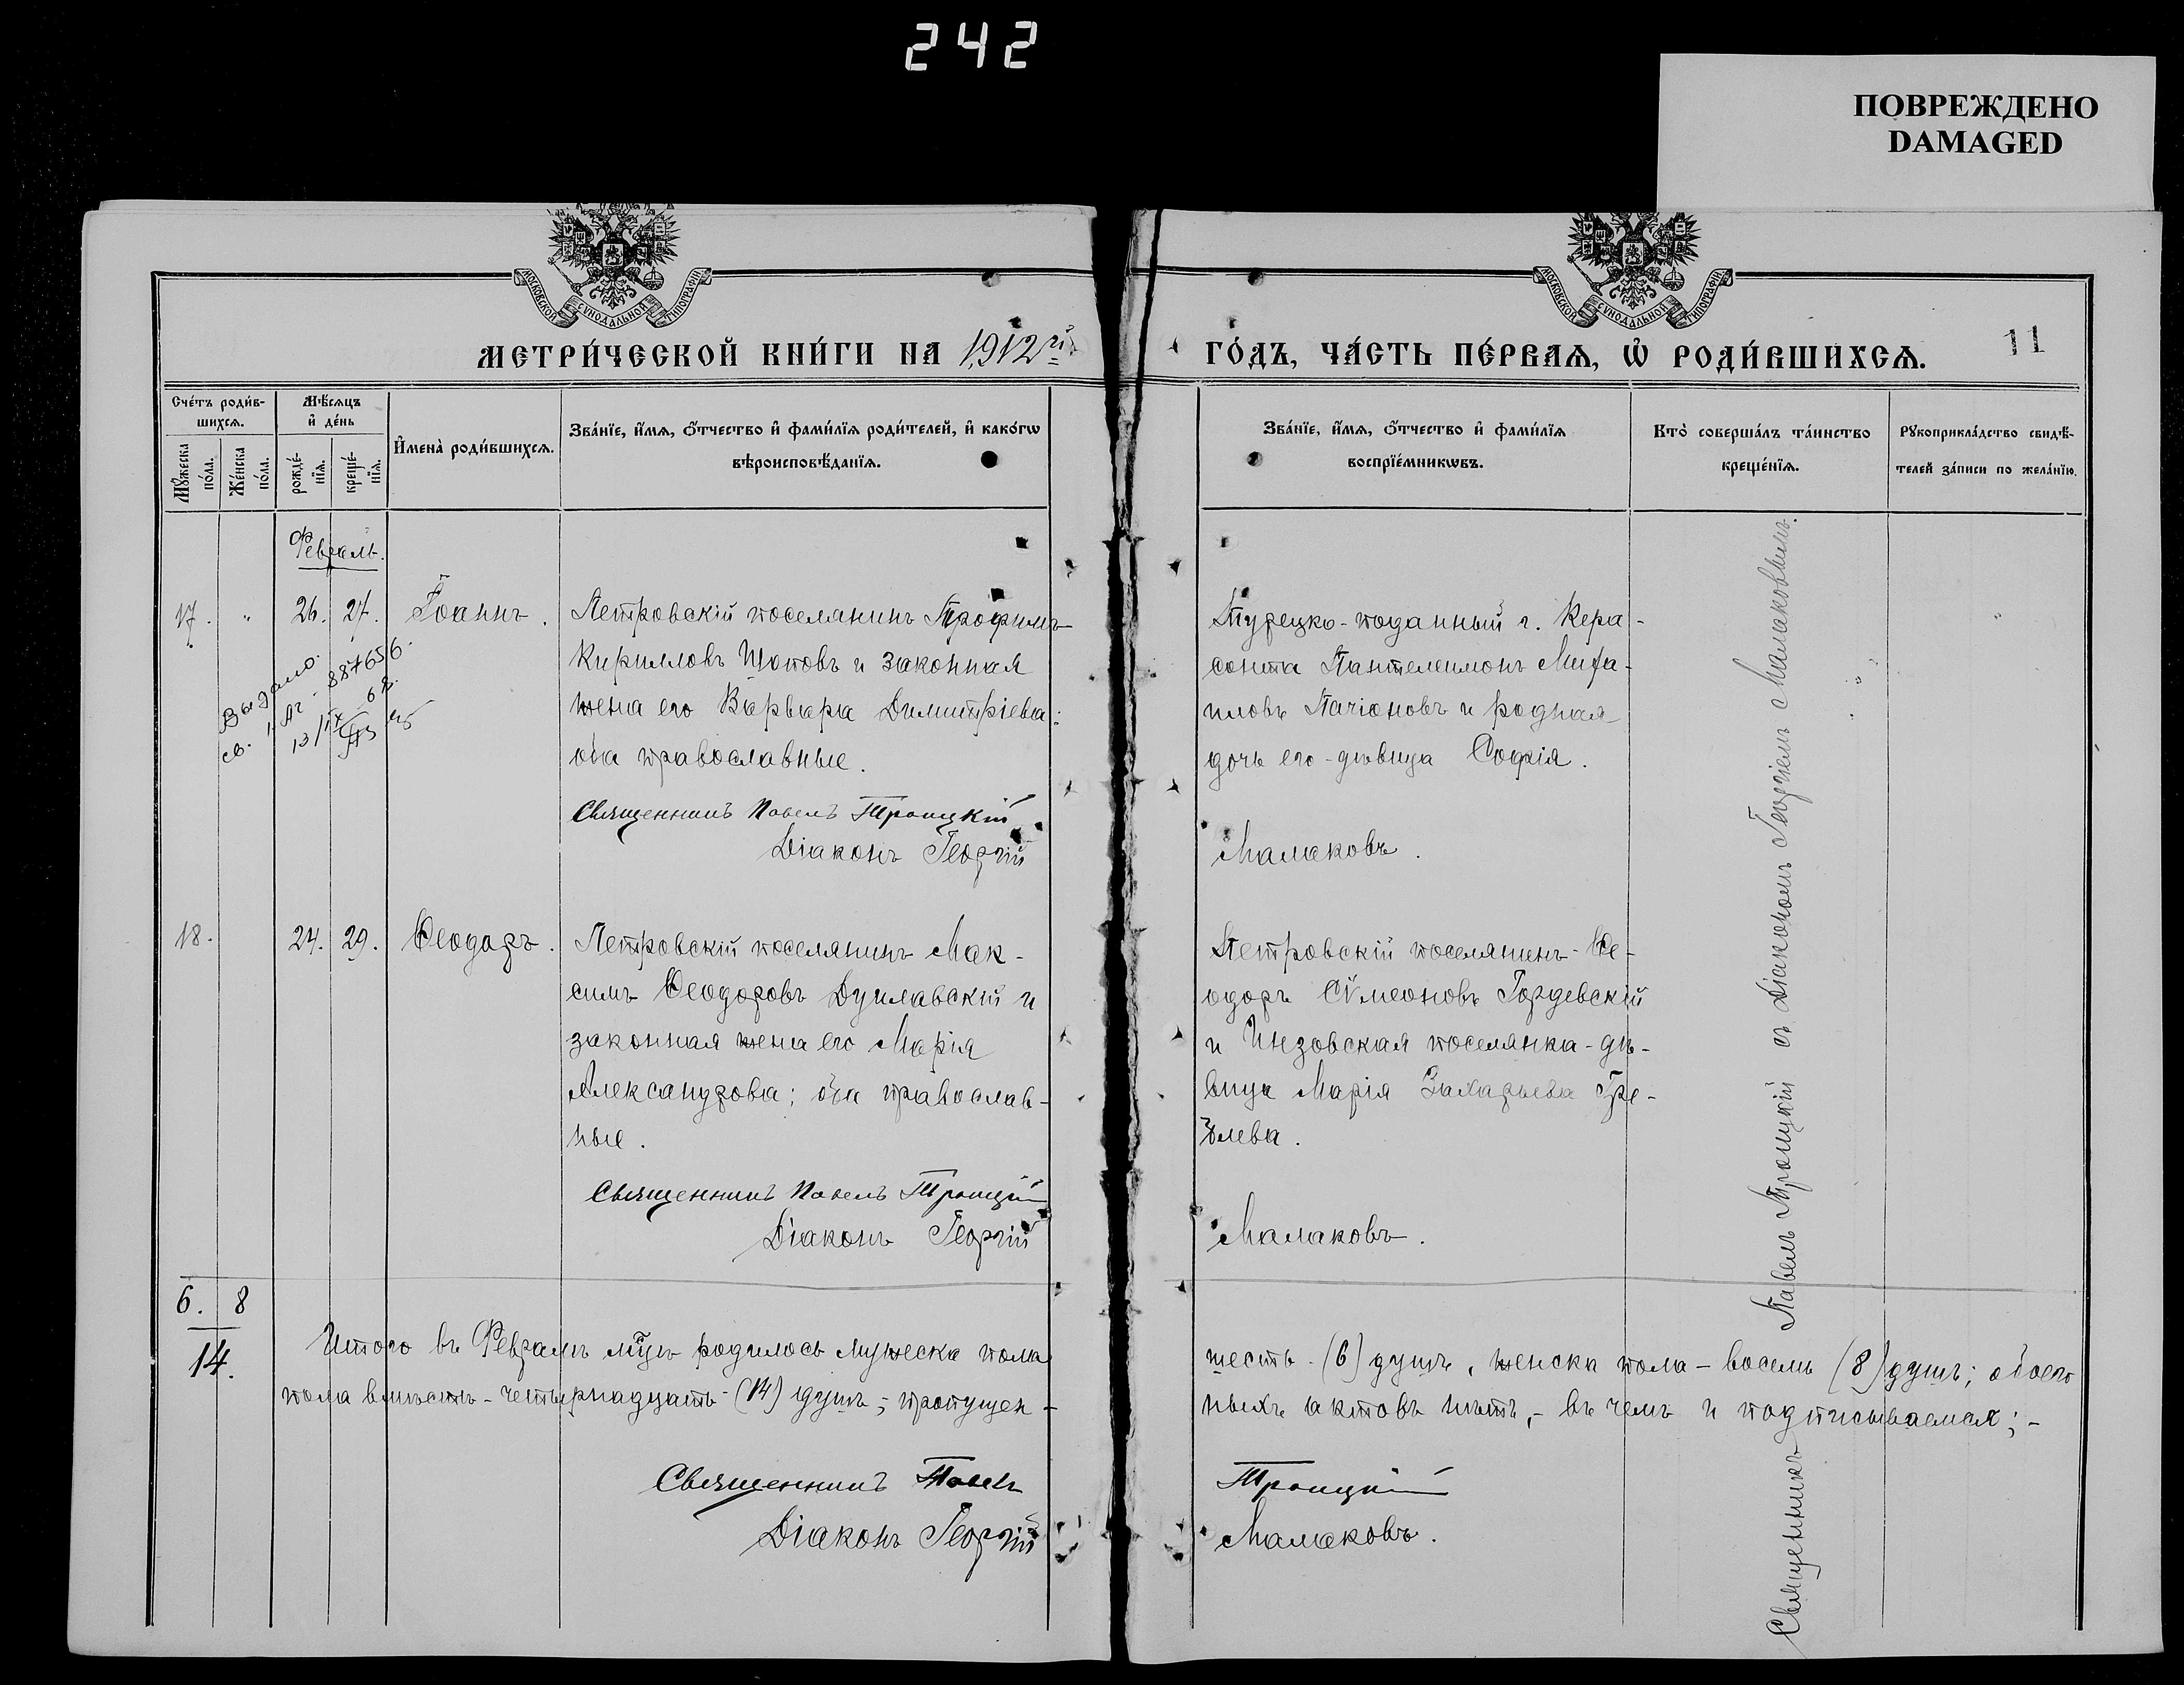 242
ПОВРЕЖДЕНО
DAMAGED
МОСКОВСКОЙ СѴНОДАЛЬНОЙ ТИПОГРАФІИ
МОСКОВСКОЙ СѴНОДАЛЬНОЙ ТИПОГРАФІИ
МЕТРИ́ЧЕСКОЙ КНИ́ГИ НА 1912й
ГО́ДЪ, ЧА́СТЬ ПЕ́РВАѦ, Ѡ҆ РОДИ́ВШИХСѦ.
11
Сче́тъ роди́в-
шихсѧ.
Мꙋ́жеска по́ла.
Же́нска по́ла.
Мѣ́сѧцъ
и҆ де́нь
рожде́-
нїѧ.
креще́-
нїѧ.
И҆мена̀ роди́вшихсѧ.
Зва́нїе, и҆́мѧ, ѻ҆́тчество и҆ фами́лїѧ роди́телей, и҆ како́гѡ
вѣроисповѣ́данїѧ.
Зва́нїе, и҆́мѧ, ѻ҆́тчество и҆ фами́лїѧ
воспрїе́мникѡвъ.
Кто̀ соверша́лъ та́инство
креще́нїѧ.
Рꙋкоприкла́дство свидѣ́-
телей за́писи по жела́нїю.
Февраль.
17. " 26. 27. Іоаннъ.
Петровскій поселянинъ Трофимъ
Кирилловъ Шотовъ и законная
жена его Варвара Димитріева:
оба православные.
Священникъ Павелъ Троицкій
Діаконъ Георгій
Выдано.
св.
Турецко-поданный г. Кера-
сонта Пантелеимонъ Миха-
иловъ Пачіоновъ и родная
дочь его-дѣвица Софія.
Малаковъ.
18. 24. 29. Ѳеодоръ.
Петровскій поселянинъ Мак-
симъ Ѳеодоровъ Дуплавскій и
законная жена его Марія
Александрова; оба православ-
ные.
Священникъ Павелъ Троицкій
Діаконъ Георгій
Петровскій поселянинъ-Ѳе-
одоръ Сѷмеоновъ Гордевскій
и Инзовская поселянка-дѣ-
вица Марія Захарьева
Малаковъ.
Священникъ Павелъ Троицкій съ Діакономъ Георгіемъ Малаковымъ.
6. 8
14.
Итого въ Февралѣ мцѣ родилось мужеска пола
шесть-(6) душъ, женска пола-восемь (8) душъ; обоего
пола вмѣстѣ-четырнадцать-(14) душъ;-пропущен-
ныхъ актовъ нѣтъ,-въ чемъ и подписываемся;-
Священникъ Павелъ
Троицкій
Діаконъ Георгій
Малаковъ.